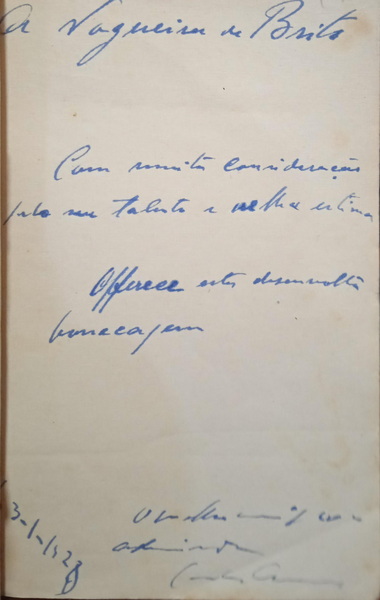 A Nogueira de Brito
Com muita consideração
pelo seu talento e velha estima
Offerece esta desenvolta
bonecagem
O velho amigo e
admirador
3-1-928